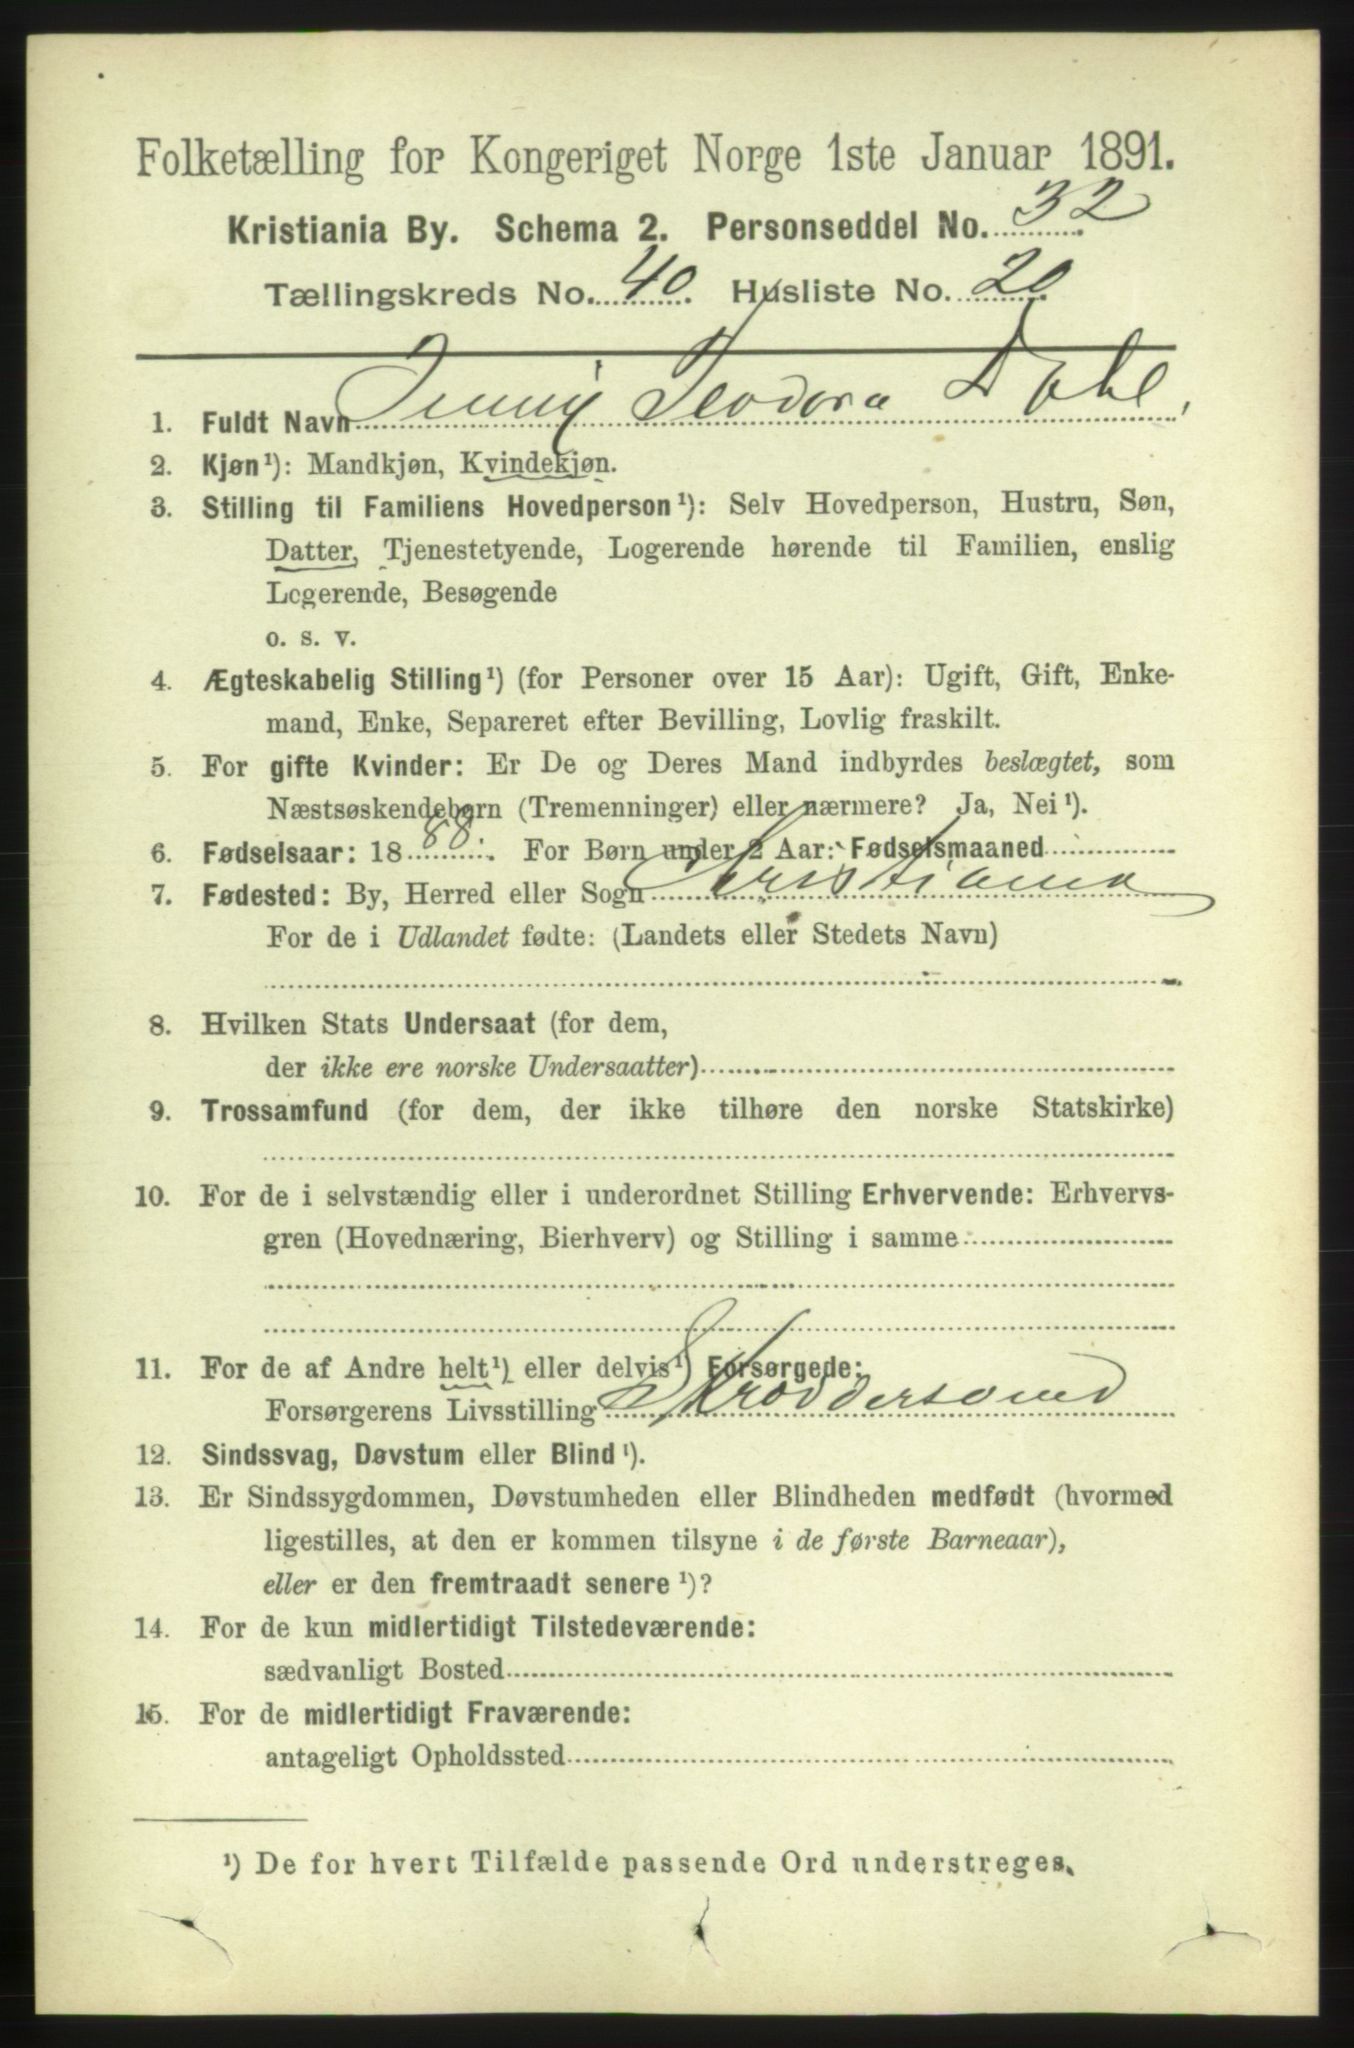 Folketælling for Kongeriget Norge 1ste Januar 1891.
Kristiania By. Schema 2. Personseddel No. 32
Tællingskreds No. 40. Husliste No. 20.
1. Fuldt Navn Jenny Teodora Dahl,
2. Kjøn¹): Mandkjøn, Kvindekjøn.
3. Stilling til Familiens Hovedperson¹): Selv Hovedperson, Hustru, Søn,
Datter, Tjenestetyende, Logerende hørende til Familien, enslig
Logerende, Besøgende
o. s. v.
4. Ægteskabelig Stilling¹) (for Personer over 15 Aar): Ugift, Gift, Enke-
mand, Enke, Separeret efter Bevilling, Lovlig fraskilt.
5. For gifte Kvinder: Er De og Deres Mand indbyrdes beslægtet, som
Næstsøskendebørn (Tremenninger) eller nærmere? Ja, Nei¹).
6. Fødselsaar: 1888. For Børn under 2 Aar: Fødselsmaaned
7. Fødested: By, Herred eller Sogn Kristiania
For de i Udlandet fødte: (Landets eller Stedets Navn)
8. Hvilken Stats Undersaat (for dem,
der ikke ere norske Undersaatter)
9. Trossamfund (for dem, der ikke tilhøre den norske Statskirke)
10. For de i selvstændig eller i underordnet Stilling Erhvervende: Erhvervs-
gren (Hovednæring, Bierhverv) og Stilling i samme
11. For de af Andre helt¹) eller delvis¹) Forsørgede:
Forsørgerens Livsstilling Skræddersvend
12. Sindssvag, Døvstum eller Blind¹).
13. Er Sindssygdommen, Døvstumheden eller Blindheden medfødt (hvormed
ligestilles, at den er kommen tilsyne i de første Barneaar),
eller er den fremtraadt senere¹)?
14. For de kun midlertidigt Tilstedeværende:
sædvanligt Bosted
15. For de midlertidigt Fraværende:
antageligt Opholdssted
¹) De for hvert Tilfælde passende Ord understreges.